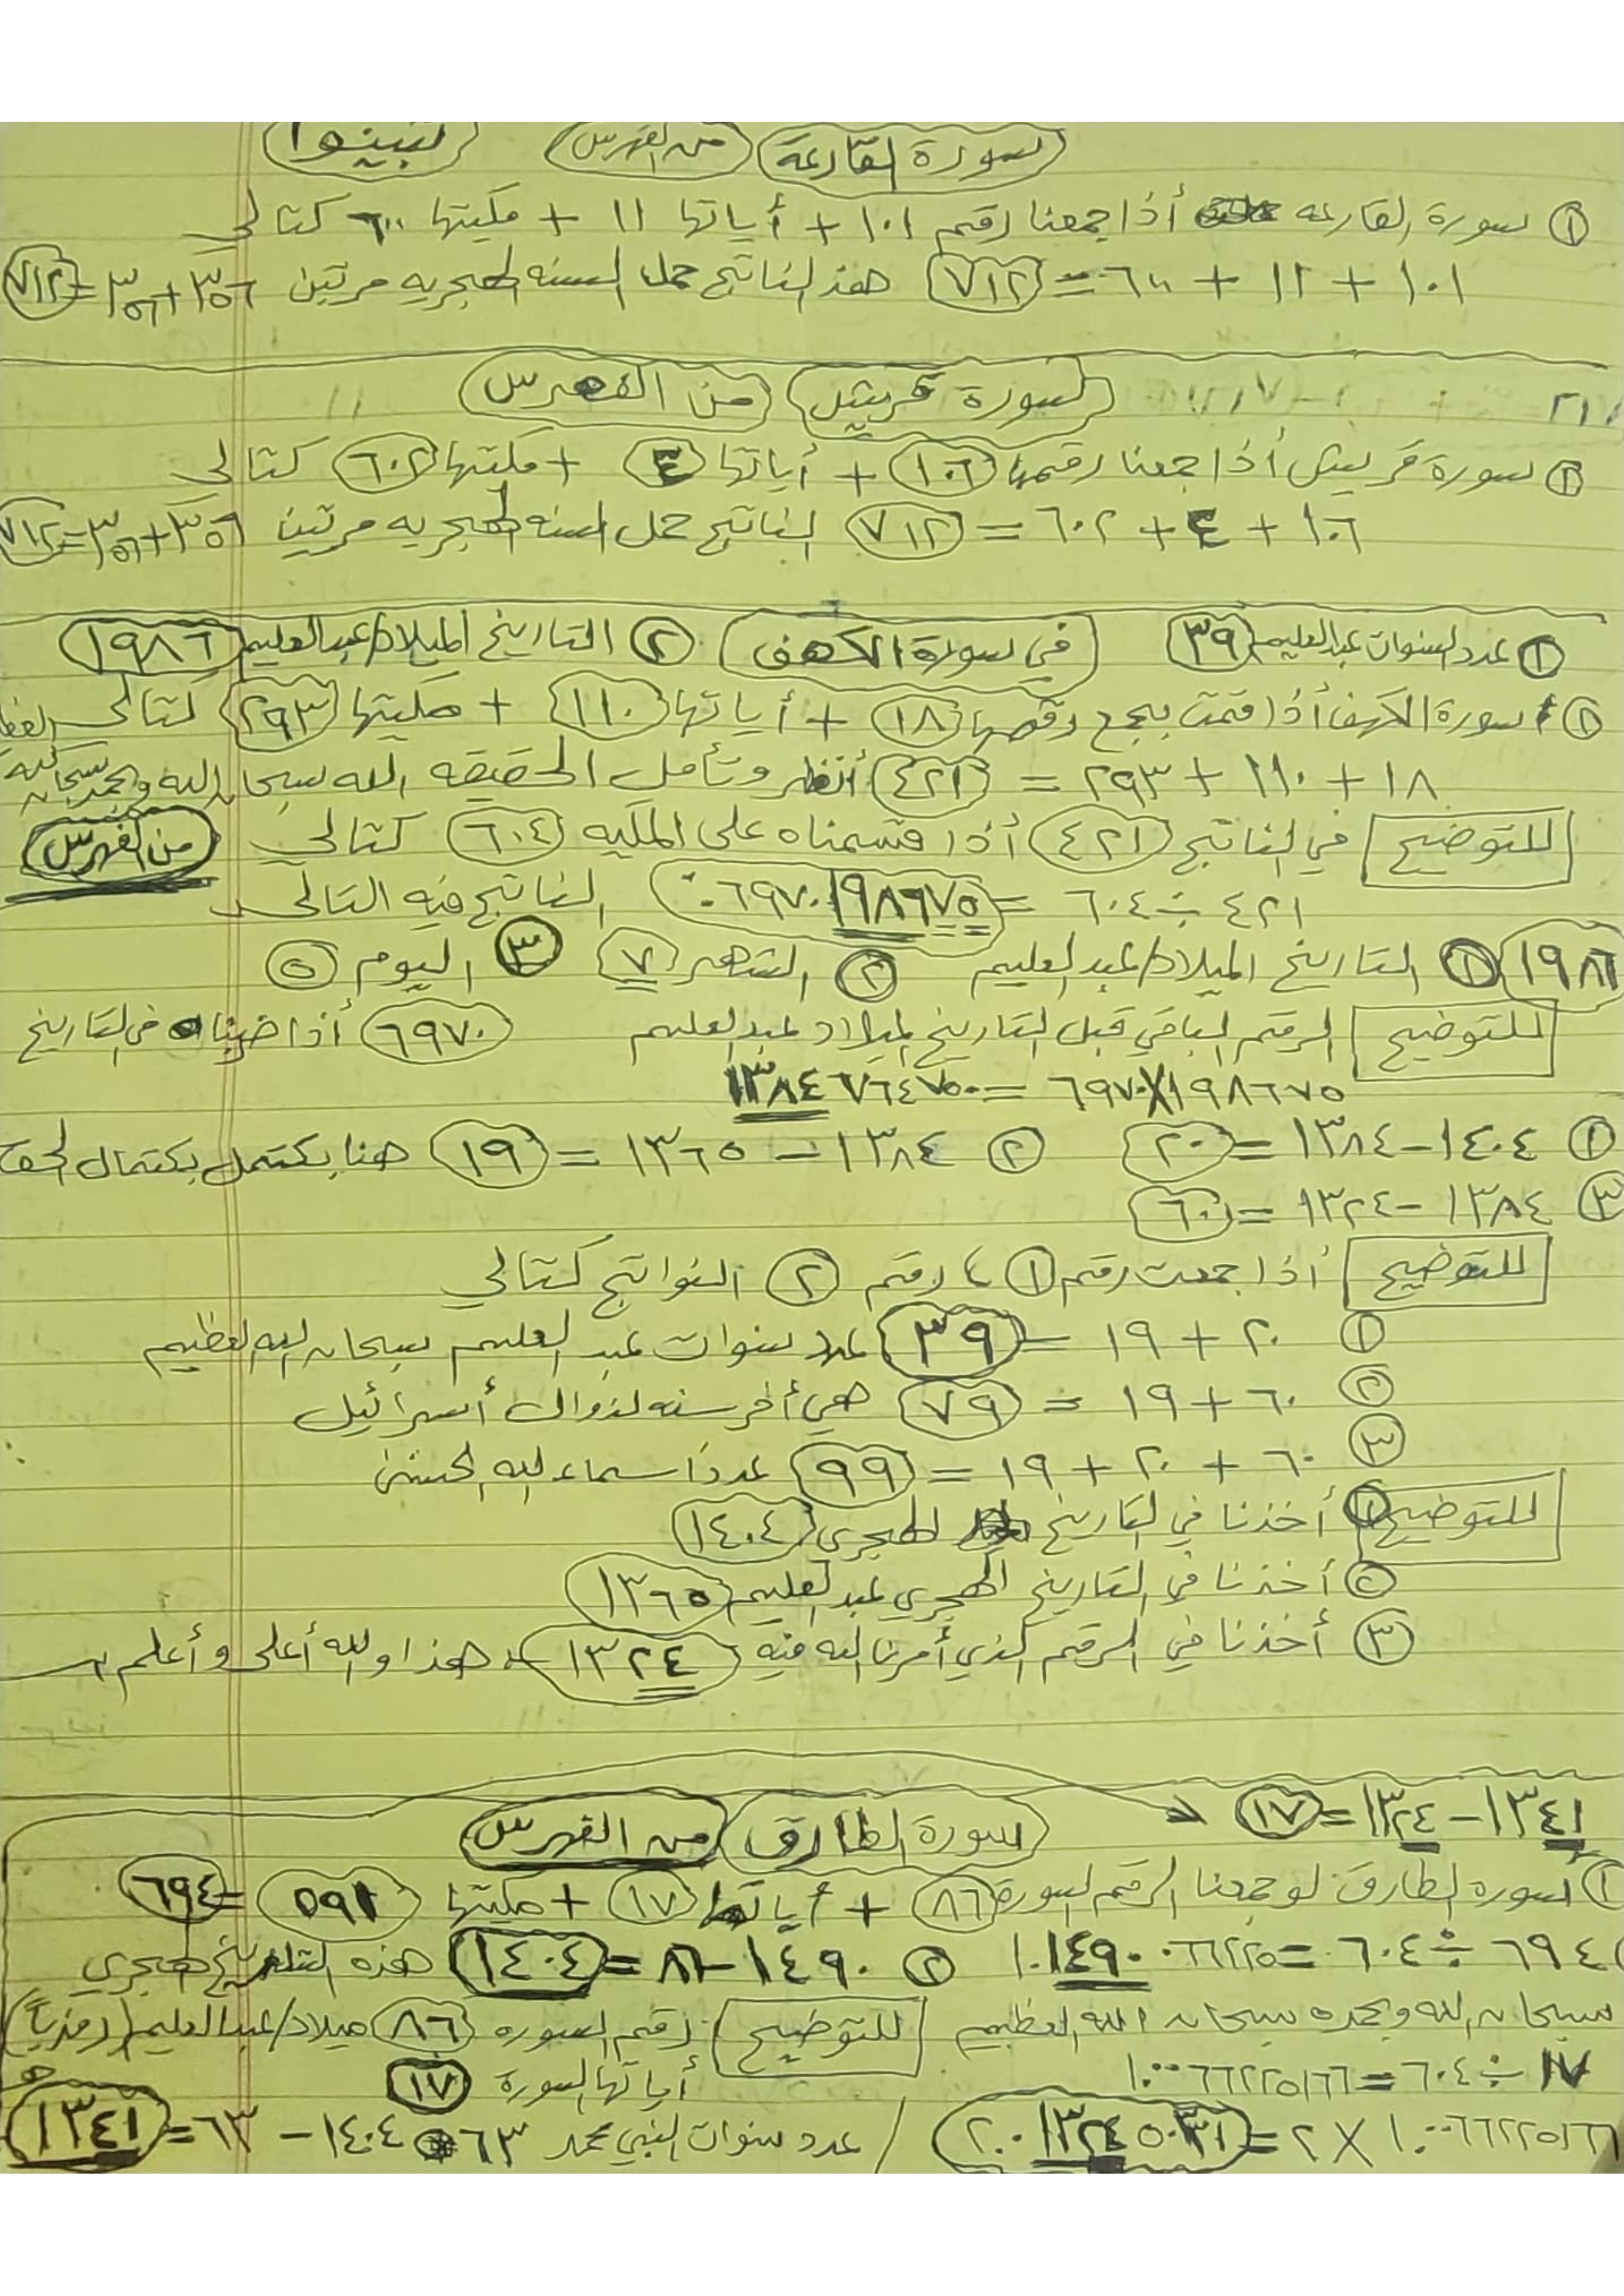 سورة القارعة من الفهرس تبينوا
① سورة القارعه أذا جمعنا رقم ١٠١ + أياتها ١١ + مكيتها ٦٠٠ كتالي
١٠١ + ١١ + ٦٠٠ = ٧١٢ هذ الناتج حمل السنه الهجريه مرتين ٣٥٦+٣٥٦=٧١٢
سورة قريش من الفهرس
② سورة قريش أذا جمعنا رقمها ١٠٦ + أياتها ٤ + مكتها ٦٠٢ كتالي
١٠٦ + ٤ + ٦٠٢ = ٧١٢ الناتج حمل السنه الهجريه مرتين ٣٥٦+٣٥٦=٧١٢
① عدد السنوات عبدالعليم ٣٩ في سورة الكهف ② التاريخ الميلاد/عبدالعليم ١٩٨٦
① سورة الكهف أذا قمت بجمع رقمها ١٨ + أياتها ١١٠ + مكيتها ٢٩٣ كتالي
١٨ + ١١٠ + ٢٩٣ = ٤٢١ أنظر وتأمل الحقيقه الله سبحان الله وبحمد سبحان الله
للتوضيح في الناتج ٤٢١ أذا قسمناه على المكيه ٦٠٤ كتالي من الفهرس
٤٢١ ÷ ٦٠٤ = ٠٦٩٧٠١٩٨٦٧٥. الناتج فيه التالي
① التاريخ الميلاد/عبدالعليم ١٩٨٦ ② الشهر ٧ ③ اليوم ٥
للتوضيح الرقم الباقي قبل التاريخ الميلاد عبدالعليم ٦٩٧٠ أذا ضربناه في التاريخ
١٩٨٦٧٥×٦٩٧٠ = ١٣٨٤٧٦٤٧٥٠
① ١٤٠٤ - ١٣٨٤ = ٢٠ ② ١٣٨٤ - ١٣٦٥ = ١٩ هنا يكتمل بكتمال الحق
③ ١٣٨٤ - ١٣٢٤ = ٦٠
للتوضيح أذا جمعت رقم ① ، رقم ② النواتج كتالي
① ٢٠ + ١٩ = ٣٩ عدد سنوات عبد العليم سبحان الله العظيم
② ٦٠ + ١٩ = ٧٩ هي أخر سنه لزوال أسرائيل
③ ٦٠ + ٢٠ + ١٩ = ٩٩ عدد أسماء الله الحسنى
للتوضيح ① أخذنا في التاريخ الهجري ١٤٠٤
② أخذنا في التاريخ الهجري عبدالعليم ١٣٦٥
③ أخذنا في الرقم الذي أمرنا الله فيه ١٣٢٤ هذا والله أعلى وأعلم
١٣٤١ - ١٣٢٤ = ١٧
سورة الطارق من الفهرس
① سوره الطارق لو جمعنا الرقم السورة ٨٦ + أياتها ١٧ + مكيتها ٥٩١ = ٦٩٤
٦٩٤ ÷ ٦٠٤ = ١.١٤٩٠٠٦٦٢٢٥ ② ١٤٩٠ - ٨٦ = ١٤٠٤ هذه التاريخ هجري
سبحان الله وبحمده سبحان الله العظيم للتوضيح رقم السوره ٨٦ ميلاد/عبدالعليم (رمزياً)
١٧ ÷ ٦٠٤ = ١٠٠٠٦٦٢٢٥١٦٦ أياتها السورة ١٧
١٠٠٠٦٦٢٢٥١٦٦ × ٢ = ٢٠٠١٣٢٤٥٠٣٣١ / عدد سنوات النبي محمد ٦٣ ١٤٠٤ - ٦٣ = ١٣٤١